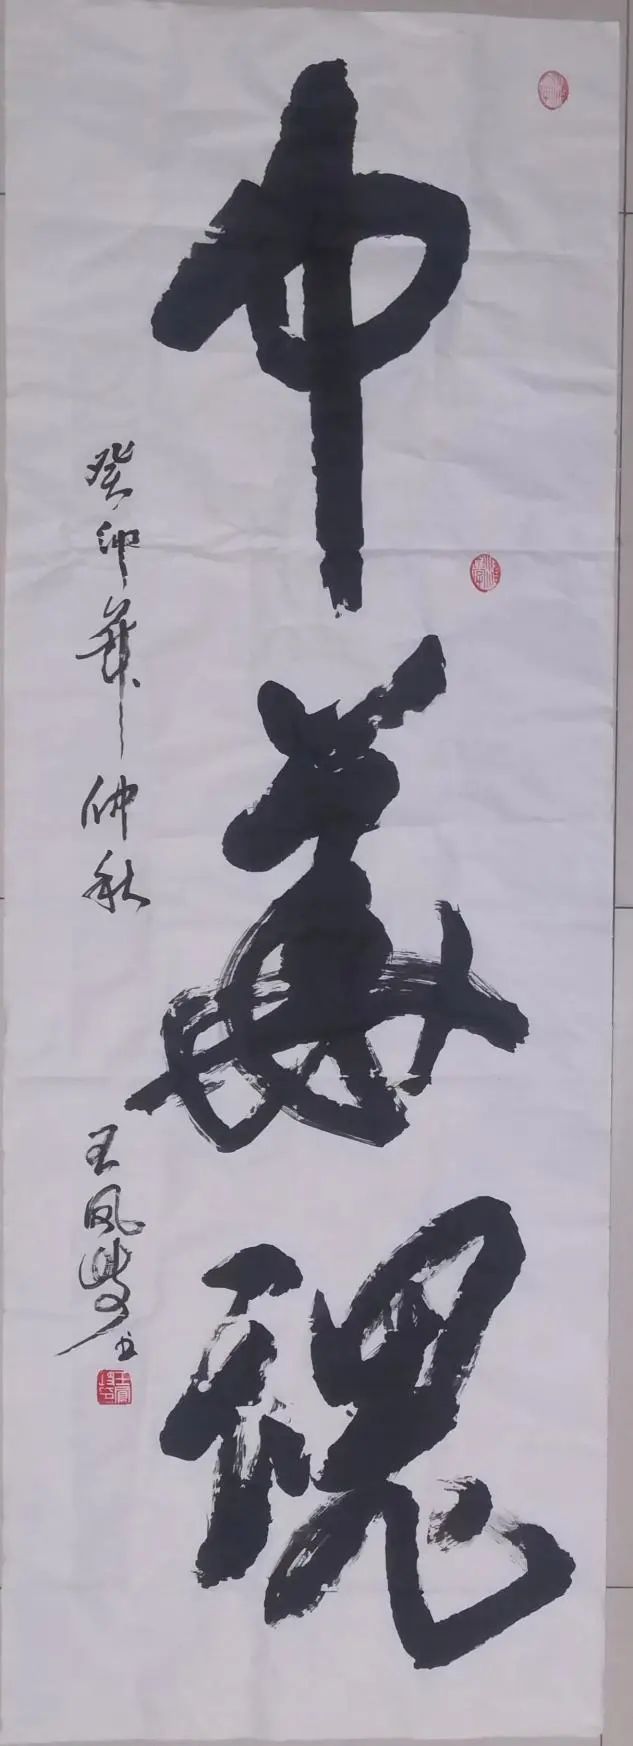 中華魂
癸卯年仲秋
王凤
书